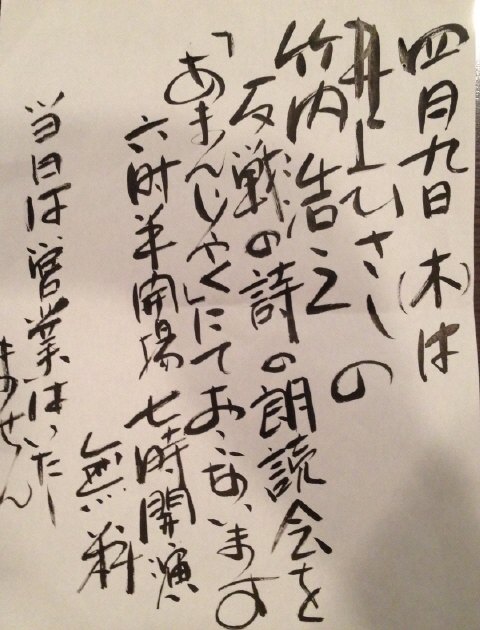 四月九日(木)は
井上ひさしの
竹内浩三
反戦の詩の朗読会を
「あまんじゃく」にておこないます
六時半開場 七時開演
無料
当日は営業はいたし
ません